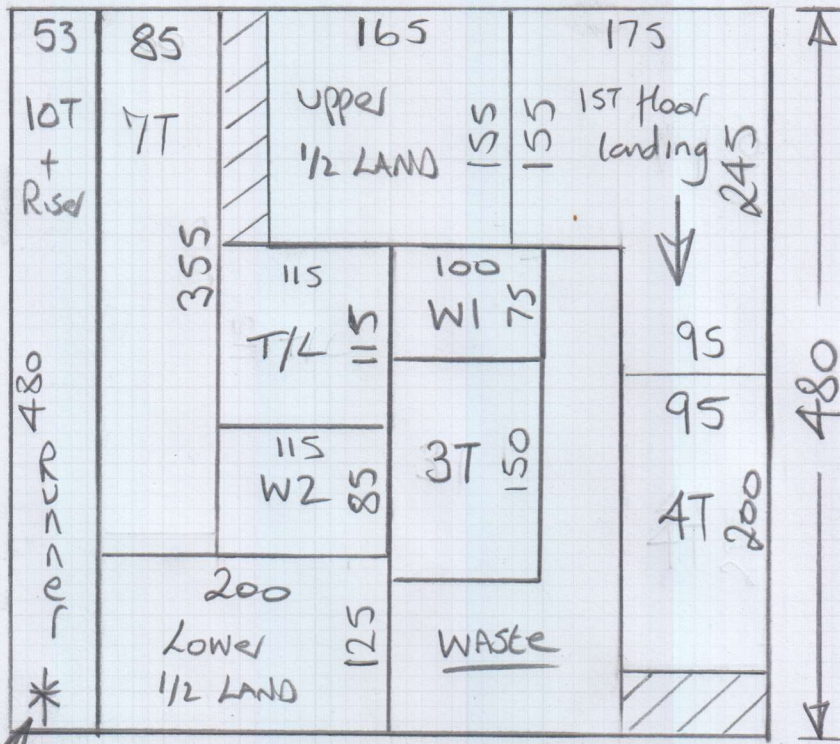 53
10T
+
Riser
480
Runner
*
85
7T
355
165
upper
1/2 LAND
155
175
1ST floor
landing
155
245
95
115
T/L
115
100
W1
75
115
W2
85
3T
150
95
4T
200
200
Lower
1/2 LAND
125
WASTE
480